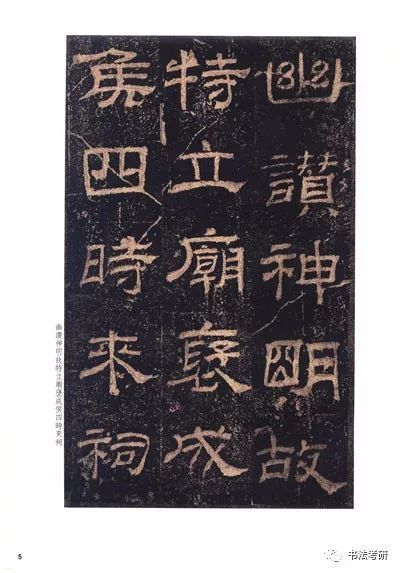 幽讃神明故
特立廟褒成
侯四時来祠
幽讚神明故特立廟褒成侯四時来祠
5
书法考研